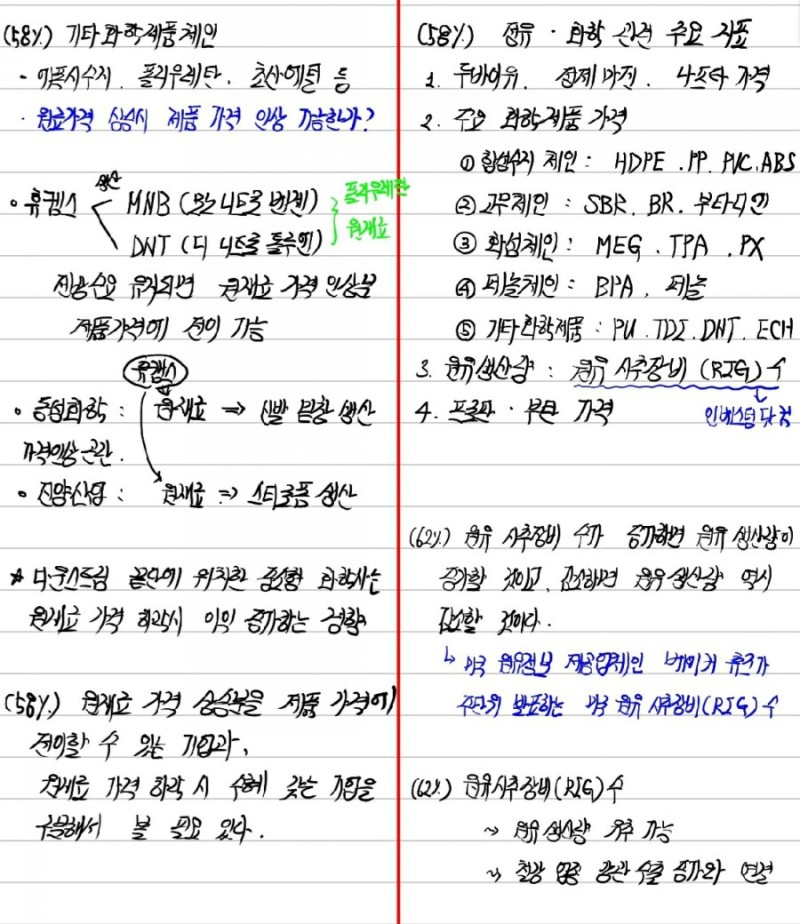 (58%) 기타화학제품체인
- 에폭시수지. 폴리우레탄. 초산에틸 등
· 원료가격 상승시 제품 가격 인상 가능한가?
• 휴켐스
생산
MNB (모노 니트로 벤젠)
DNT (디 니트로 톨루엔)
폴리우레탄
원재료
전방수요 유지되면 원재료 가격 인상분
제품가격에 전이 가능
휴켐스
• 동성화학 : 원재료 ⇒ 신발 밑창 생산
가격인상 곤란.
• 진양산업 : 원재료 ⇒ 스티로폼 생산
* 다운스트림 끝단에 위치한 중소형 화학사는
원재료 가격 하락시 이익 증가하는 경향
(58%) 원재료 가격 상승분을 제품 가격에
전이할 수 있는 기업과,
원재료 가격 하락 시 수혜 갖는 기업을
구분해서 볼 필요 있다.
(58%) 정유 · 화학 관련 주요 지표
1. 두바이유. 정제마진. 나프타 가격
2. 주요 화학제품 가격
① 합성수지 체인 : HDPE . PP. PVC. ABS
② 고무체인 : SBR. BR. 부타디엔
③ 화섬체인 : MEG . TPA . PX
④ 페놀체인 : BPA . 페놀
⑤ 기타화학제품 : PU . TDI . DNT. ECH
3. 원유생산량 : 원유 시추장비 (RIG) 수
인베스팅닷컴
4. 프로판 · 부탄 가격
(62%) 원유 시추장비 수가 증가하면 원유 생산량이
증가할 것이고, 감소하면 원유생산량 역시
감소할 것이다.
↳ 미국 원유정보 제공업체인 베이커 휴즈가
주단위 발표하는 미국 원유 시추장비(RIG) 수
(62%) 원유시추장비(RIG) 수
~> 원유생산량 유추 가능
~> 철강 업종 강관 수출 증가와 연결